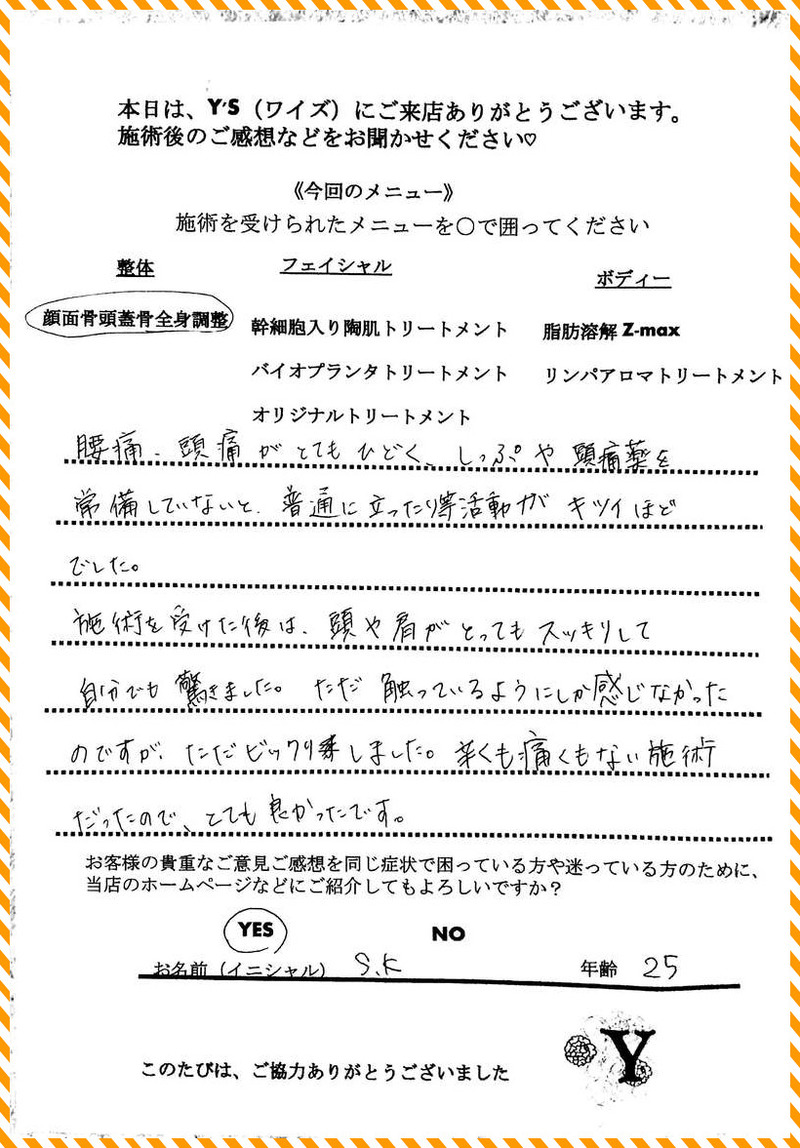 本日は、Y'S（ワイズ）にご来店ありがとうございます。
施術後のご感想などをお聞かせください♡
《今回のメニュー》
施術を受けられたメニューを〇で囲ってください
整体
フェイシャル
ボディー
顔面骨頭蓋骨全身調整
幹細胞入り陶肌トリートメント
脂肪溶解 Z-max
バイオプランタトリートメント
リンパアロマトリートメント
オリジナルトリートメント
腰痛、頭痛がとてもひどく、しっぷや頭痛薬を
常備していないと、普通に立ったり等活動がキツイほど
でした。
施術を受けた後は、頭や肩がとってもスッキリして
自分でも驚きました。ただ触っているようにしか感じなかった
のですが、ただビックリしました。辛くも痛くもない施術
だったので、とても良かったです。
お客様の貴重なご意見ご感想を同じ症状で困っている方や迷っている方のために、
当店のホームページなどにご紹介してもよろしいですか？
YES NO
お名前（イニシャル） S.K 年齢 25
このたびは、ご協力ありがとうございました
Y